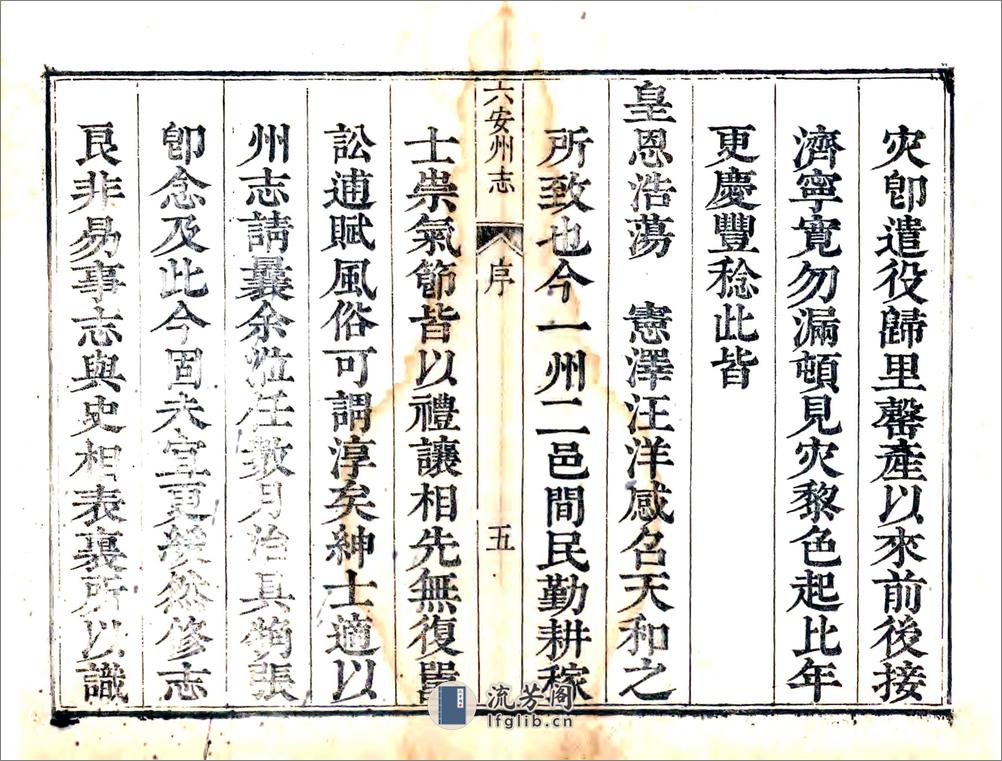 灾卽遣役歸里罄產以來前後接
濟寧寛勿漏頓見灾黎色起比年
更慶豐稔此皆
皇恩浩蕩 憲澤汪洋感名天和之
所致也今一州二邑間民勤耕稼
六安州志 序 五
士崇氣節皆以禮讓相先無復嚚
訟逋賦風俗可謂淳矣紳士適以
州志請曩余涖任數月治具始張
卽念及此今固未宜更緩然修志
良非易事志與史相表裏所以識
流芳阁
lfglib.cn